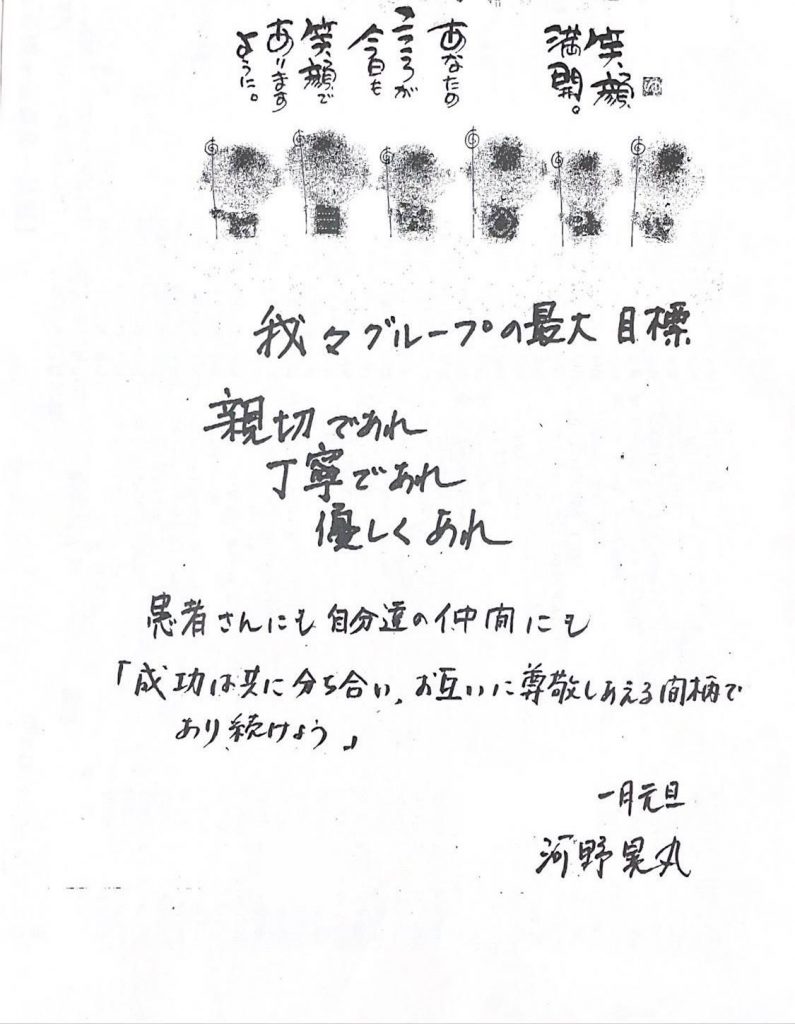 笑顔
満開。
あなたの
こころが
今日も
笑顔で
あります
ように。
我々グループの最大目標
親切であれ
丁寧であれ
優しくあれ
患者さんにも自分達の仲間にも
「成功は共に分ち合い、お互いに尊敬しあえる間柄で
あり続けよう」
一月元旦
河野晃丸